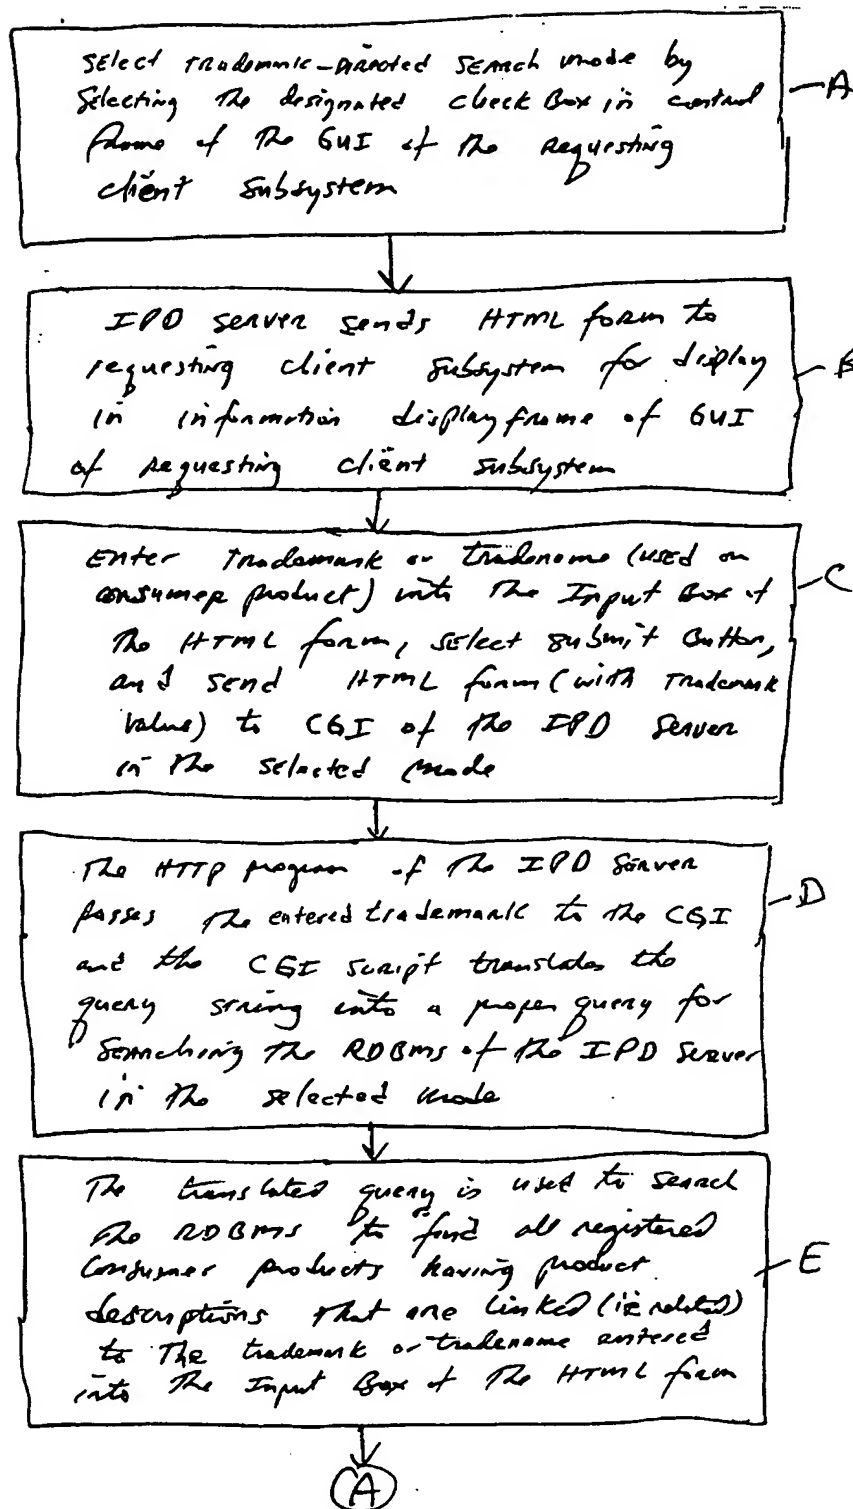 Select Trademark-Directed Search mode by
Selecting the designated check Box in control
frame of the GUI of the Requesting
client subsystem
A
IPD Server sends HTML form to
requesting client subsystem for display
in information display frame of GUI
of requesting client subsystem
B
Enter Trademark or tradename (used on
consumer product) into the Input Box of
the HTML form, select submit Button,
and send HTML form (with Trademark
Value) to CGI of the IPD Server
in the selected mode
C
The HTTP program of the IPD Server
passes the entered trademark to the CGI
and the CGI script translates the
query string into a proper query for
Searching the RDBMS of the IPD Server
in the selected mode
D
The translated query is used to search
the RDBMS to find all registered
Consumer products having product
descriptions that are linked (ie related)
to the trademark or tradename entered
into the Input Box of the HTML form
E
A